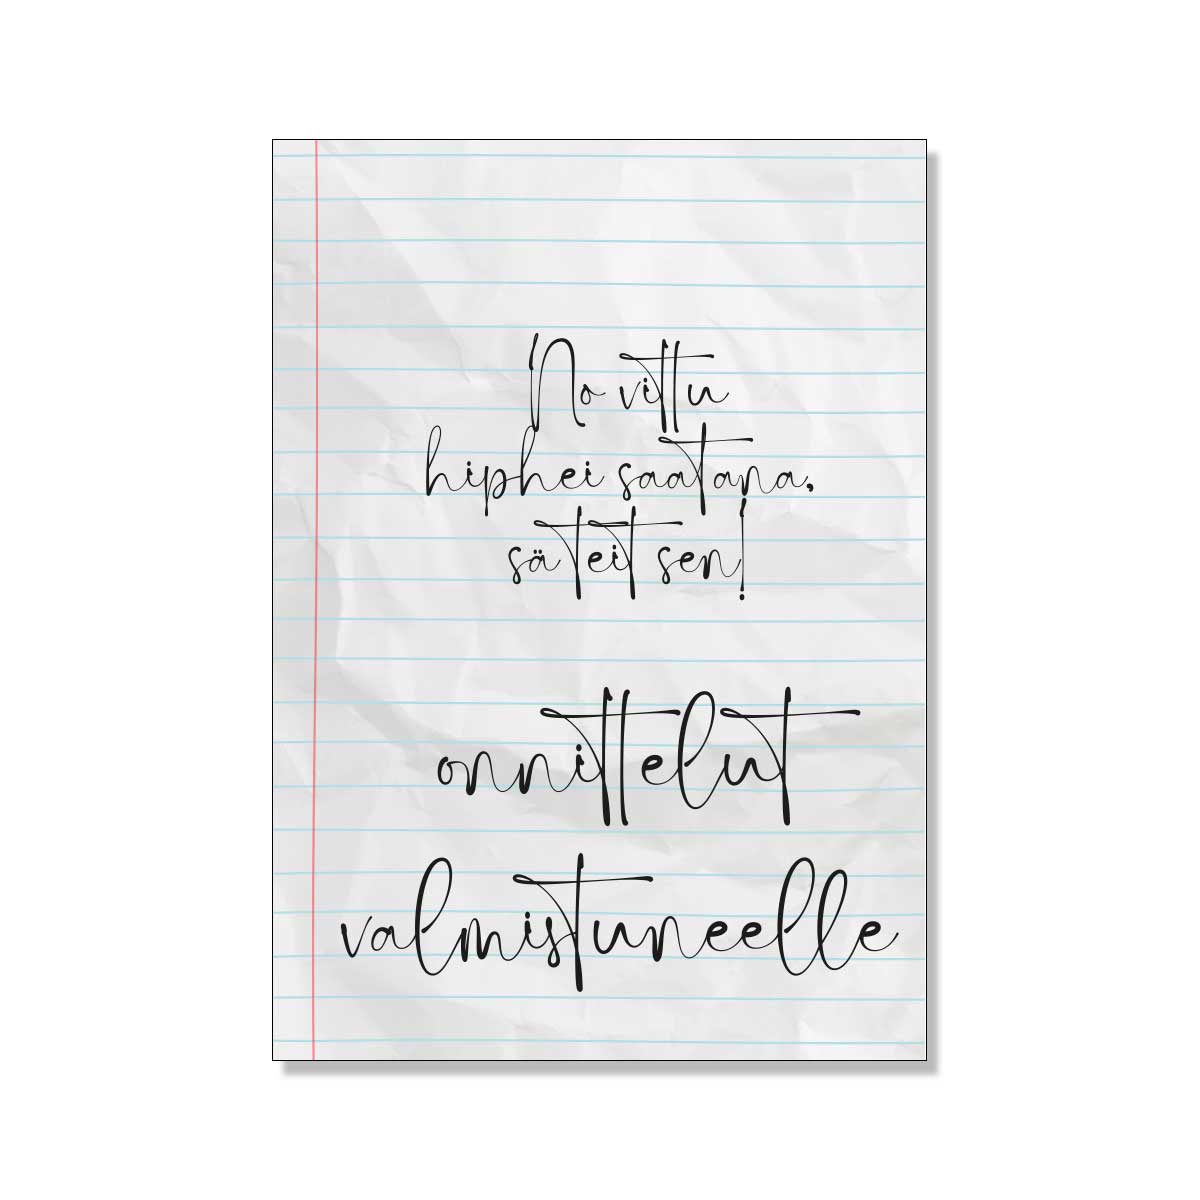 No vittu
hiphei saatana,
sä teit sen!
onnittelut
valmistuneelle